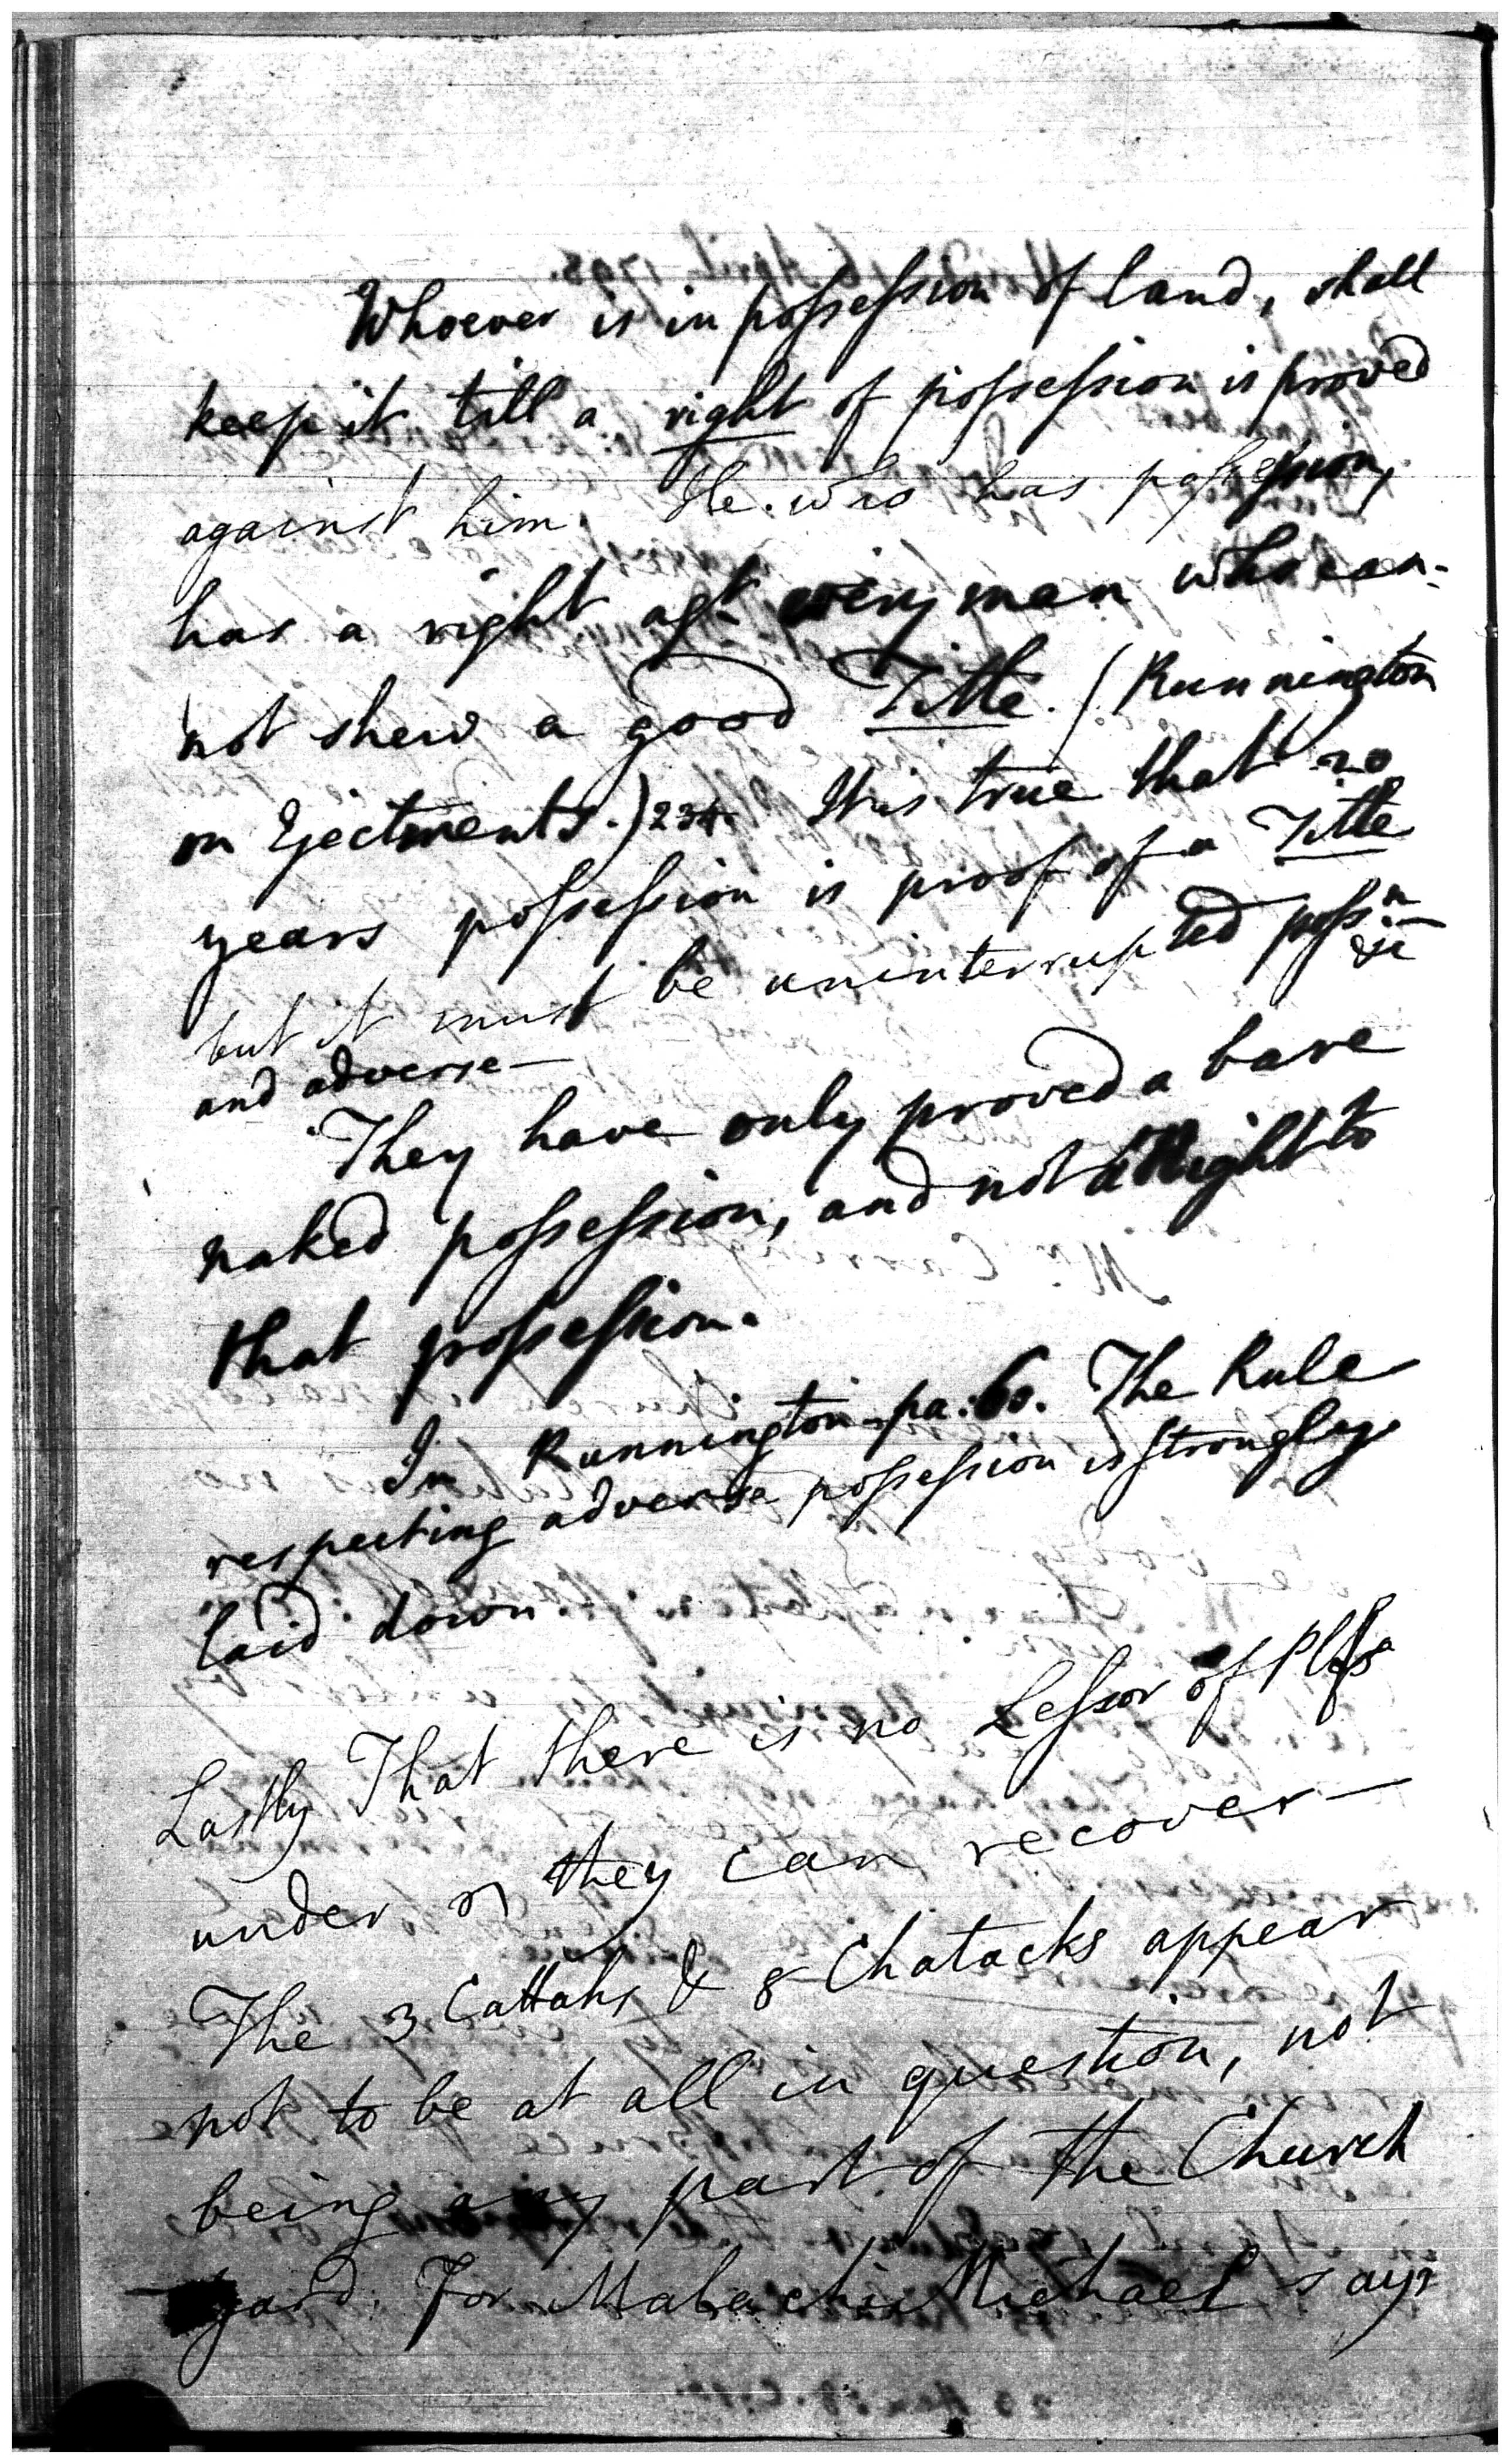 Whoever is in possession of land, shall
keep it till a right of possession is proved
against him. He who has possession,
has a right agt. every man who can-
not shew a good Title. (Runnington
on Ejectments.) 234. It is true that 20
years possession is proof of a Title
but it must be uninterrupted possn. &c
and adverse—
They have only proved a bare
naked possession, and not a Right to
that possession.
In Runnington pa: 60. The Rule
respecting adverse possession is strongly
laid down.
Lastly That there is no Lessor of Plffs
under they can recover—
The 3 Cattahs & 8 Chatacks appear
not to be at all in question, not
being any part of the Church
yard. For Malachi Michael says